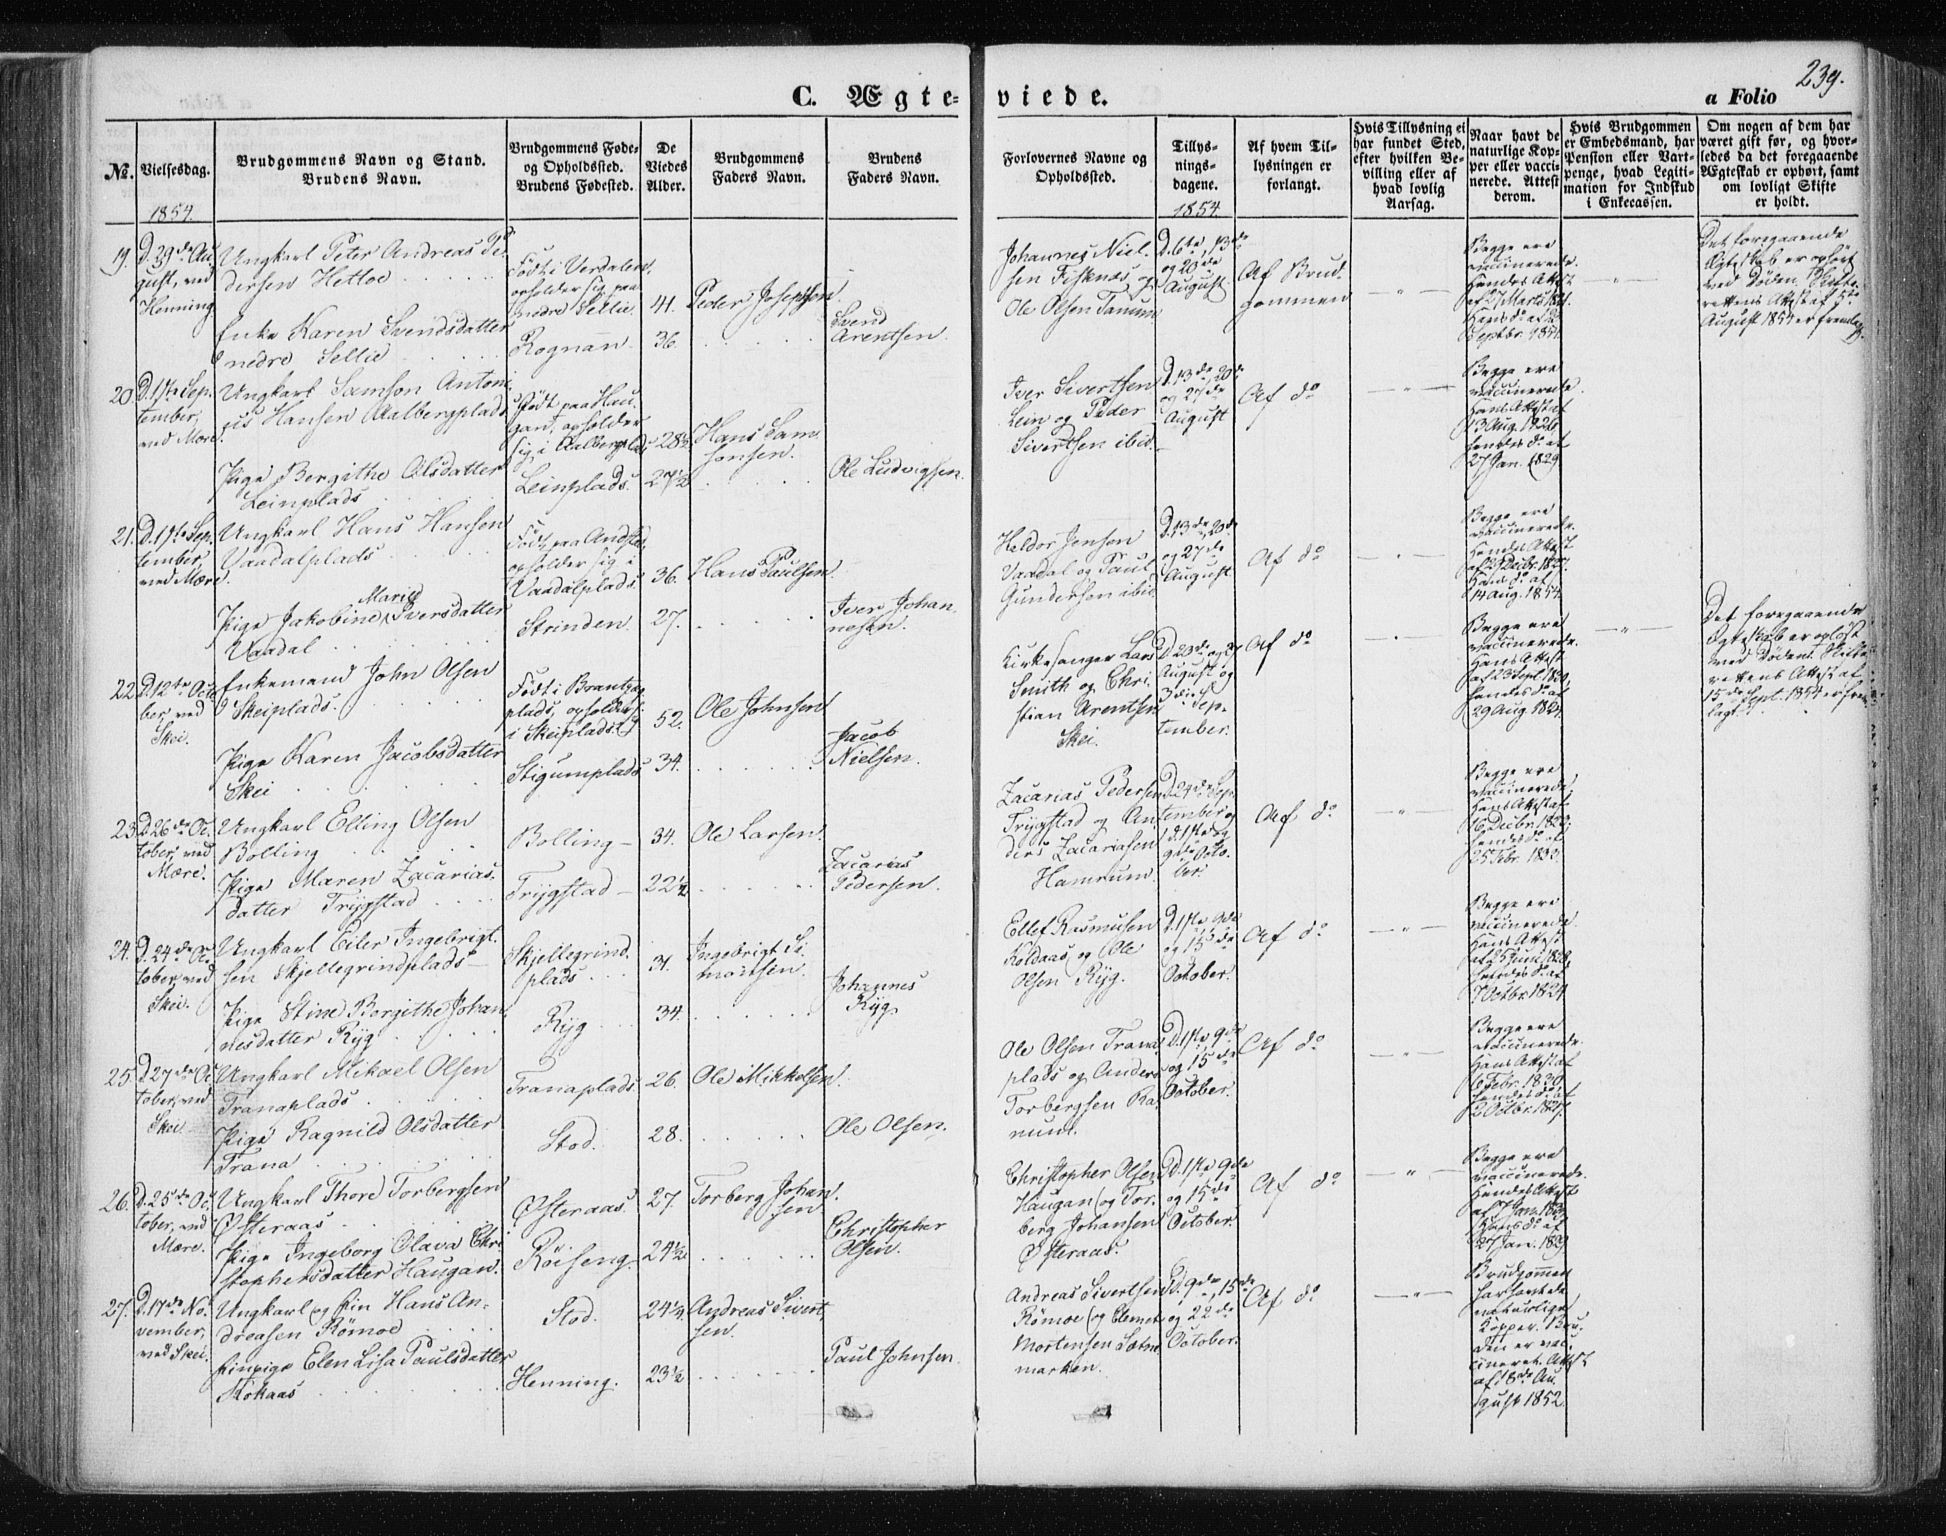 239.
C. Ægte-
viede.
a Folio
No.
Vielsesdag.
Brudgommens Navn og Stand.
Brudens Navn.
Brudgommens Føde-
og Opholdssted.
Brudens Fødested.
De
Viedes
Alder.
Brudgommens
Faders Navn.
Brudens
Faders Navn.
Forlovernes Navne og
Opholdssted.
Tillys-
nings-
dagene.
Af hvem Til-
lysningen er
forlangt.
Hvis Tillysning ei
har fundet Sted,
efter hvilken Be-
villing eller af
hvad lovlig
Aarsag.
Naar havt de
naturlige Kop-
per eller vacci-
nerede. Attest
derom.
Hvis Brudgommen
er Embedsmand, har
Pension eller Vart-
penge, hvad Legiti-
mation for Indskud
i Enkecassen.
Om nogen af dem har
været gift før, og hvor-
ledes da det foregaaende
Ægteskab er ophørt, samt
om lovligt Skifte
er holdt.
1854.
1854.
19.
D. 29de Au-
gust, ved
Henning
Ungkarl Peter Andreas Pe-
dersen Hetloe
Enke Karen Svendsdatter
nedre Sellie
Født i Verdalen,
opholder sig paa
nedre Sellie.
Rognan
41.
36.
Peder Josephsen
Svend
Arentsen.
Johannes Niel-
sen Fisknæs og
Ole Olsen Tanum
D. 6te, 13de
og 20de
August.
Af Brud-
gommen
Begge ere
vaccinerede.
Hendes Attest
af 27 Marts 1821.
Hans do af 2
Septbr. 1854.
Det foregaaende
Ægteskab er ophørt
ved Døden. Skifte-
rettens Attest af 5te
August 1854 er fremlagt.
20.
D. 1ste Sep-
tember,
ved Mære
Ungkarl Samson Antoni-
us Hansen Aalbergplads
Pige Bergithe Olsdatter
Leinplads
Født paa Hau-
gan, opholder
sig i Aalbergplads
Leinplads.
28½
27½
Hans Sam-
sonsen.
Ole Ludvigsen.
Iver Sivertsen
Lein og Peder
Sivertsen ibid.
D. 13de, 20de
og 27de
August
Af do
Begge ere
vaccinerede.
Hans Attest af
13 Aug. 1828
hendes do af
27 Jan. 1829.
21.
D. 19te Sep-
tember,
ved Mære.
Ungkarl Hans Hansen
Vaadalplads
Marie
Pige Jakobine Iversdatter
Vaadal
Født paa Andstad,
opholder sig i
Vaadalplads
Strinden
36.
27.
Hans Paulsen
Iver Johan-
nesen.
Heldor Jensen
Vaadal og Paul
Gundersen ibid.
D. 13de, 20de
og 27de
August.
Af do
Begge ere
vaccinerede.
Hendes Attest
Hans do af
14 Aug. 1854.
22.
D. 12te Octo-
ber, ved
Skei.
Enkemand John Olsen
Skeiplads.
Pige Karen Jacobsdatter
Skei
Født i Brantzæg
plads, opholder s.
i Skeiplads.
Stigumplads
52.
34.
Ole Johnsen
Jacob
Nielsen.
Kirkesanger Lars
Smith og Chri-
stian Arentsen
Skei.
D. 20de og 27
August og
3die Sep-
tember.
Af do
Begge ere
vaccinerede.
Hans Attest
af 23 Sept. 1820,
hendes do af
29 Aug. 1824.
Det foregaaende
Ægteskab er opløst
ved Døden. Skifte-
rettens Attest af
15de Sept. 1854 er frem-
lagt.
23.
D. 26de Oc-
tober, ved
Mære.
Ungkarl Elling Olsen
Bolling
Pige Maren Zacarias-
datter Trygstad
Bolling
Trygstad
34.
22½
Ole Larsen.
Zacarias
Pedersen.
Zacarias Pedersen
Trygstad og An-
ders Zacariasen
Hamrum.
D. 24de Sep-
tember og
d. 1ste og
9de Octo-
ber.
Af do
Begge ere
vaccinerede,
Hans Attest af
16 Decbr. 1820;
hendes do af
25 Febr. 1832.
24.
D. 24de Oc-
tober, ved
Skei.
Ungkarl Eiler Ingebrigt-
sen Skjellegrindplads
Pige Stine Bergithe Johan-
nesdatter Ryg
Skjellegrind-
plads
Ryg
31.
34.
Ingebrigt Si-
monsen.
Johannes
Ryg.
Ellef Rasmusen
Koldaas og Ole
Olsen Ryg.
D. 1ste, 9de
og 15de
October.
Af do
Begge ere
vaccinerede.
Hans Attest
af 25 Juni 1828,
hendes do af
7 Octbr. 1824
25.
D. 27de Oc-
tober, ved
Skei
Ungkarl Mikael Olsen
Tranaplads
Pige Ragnild Olsdatter
Trana
Tranaplads
Stod.
26.
28.
Ole Mikkelsen.
Ole Olsen.
Ole Olsen Trana-
plads og Anders
Torbergsen Ra-
num.
D. 1ste, 9de
og 15de
October.
Af do
Begge ere
vaccinerede.
Hans Attest af
6 Febr. 1830,
hendes do af
2 Octbr. 1827.
26.
D. 25de Oc-
tober, ved
Mære.
Ungkarl Thore Torbergsen
Østeraas
Pige Ingeborg Olava Chri-
stophersdatter Haugan.
Østeraas.
Røiseng.
27.
24½
Torberg Johan-
sen
Christopher
Olsen.
Christopher Olsen
Haugan og Tor-
berg Johansen
Østeraas.
D. 1ste, 9de
og 15de
October.
Af do
Begge ere
vaccinerede.
Hendes Attest
Hans do af
27 Jan. 1829
27.
D. 17de No-
vember,
ved Skei.
Ungkarl og Fin Hans An-
dreasen Rømoe
Finpige Elen Lisa Paulsdatter
Kokaas
Stod.
Henning.
24½
23½
Andreas Sivert-
sen.
Paul Johnsen.
Andreas Sivertsen
Rømoe og Clemet
Mortensen Lethe-
marken.
D. 9de, 15de
og 22de
October.
Af do
Brudgommen
har havt de
naturlige
Kopper. Bru-
den er vac-
cineret. Attest
af 18de Au-
gust 1852.